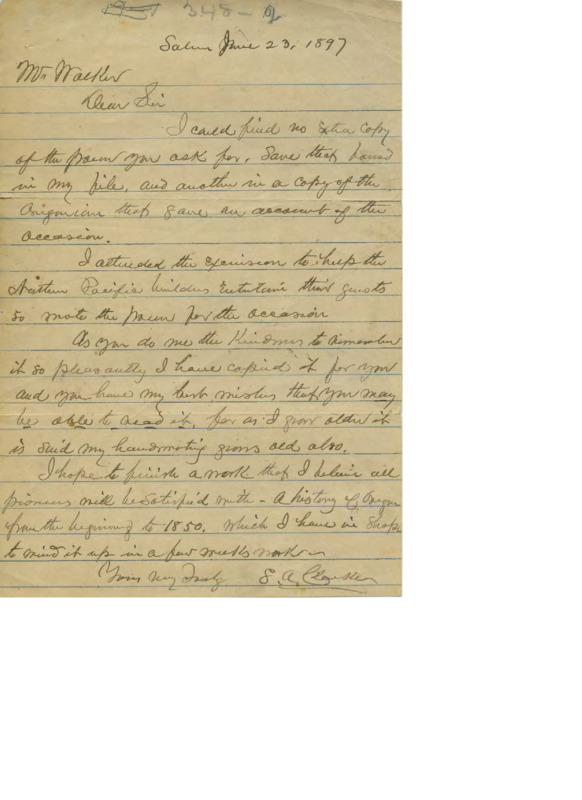 348-
Salem June 23, 1897
Mr Walker
Dear Sir
I could find no extra copy
of the poem you ask for, save that bound
in my file, and another in a copy of the
Oregonian that gave an account of the
occasion.
I attended the excursion to help the
Northern Pacific builders entertain their guests
so wrote the poem for the occasion
As you do me the kindness to remember
it so pleasantly I have copied it for you
and you have my best wishes that you may
be able to read it, for as I grow older it
is said my handwriting grows old also.
I hope to finish a work that I believe all
pioneers will be satisfied with - A history of Oregon
from the beginning to 1850. which I have in shape
to wind it up in a few weeks work
Yours very truly S. A. Clarke